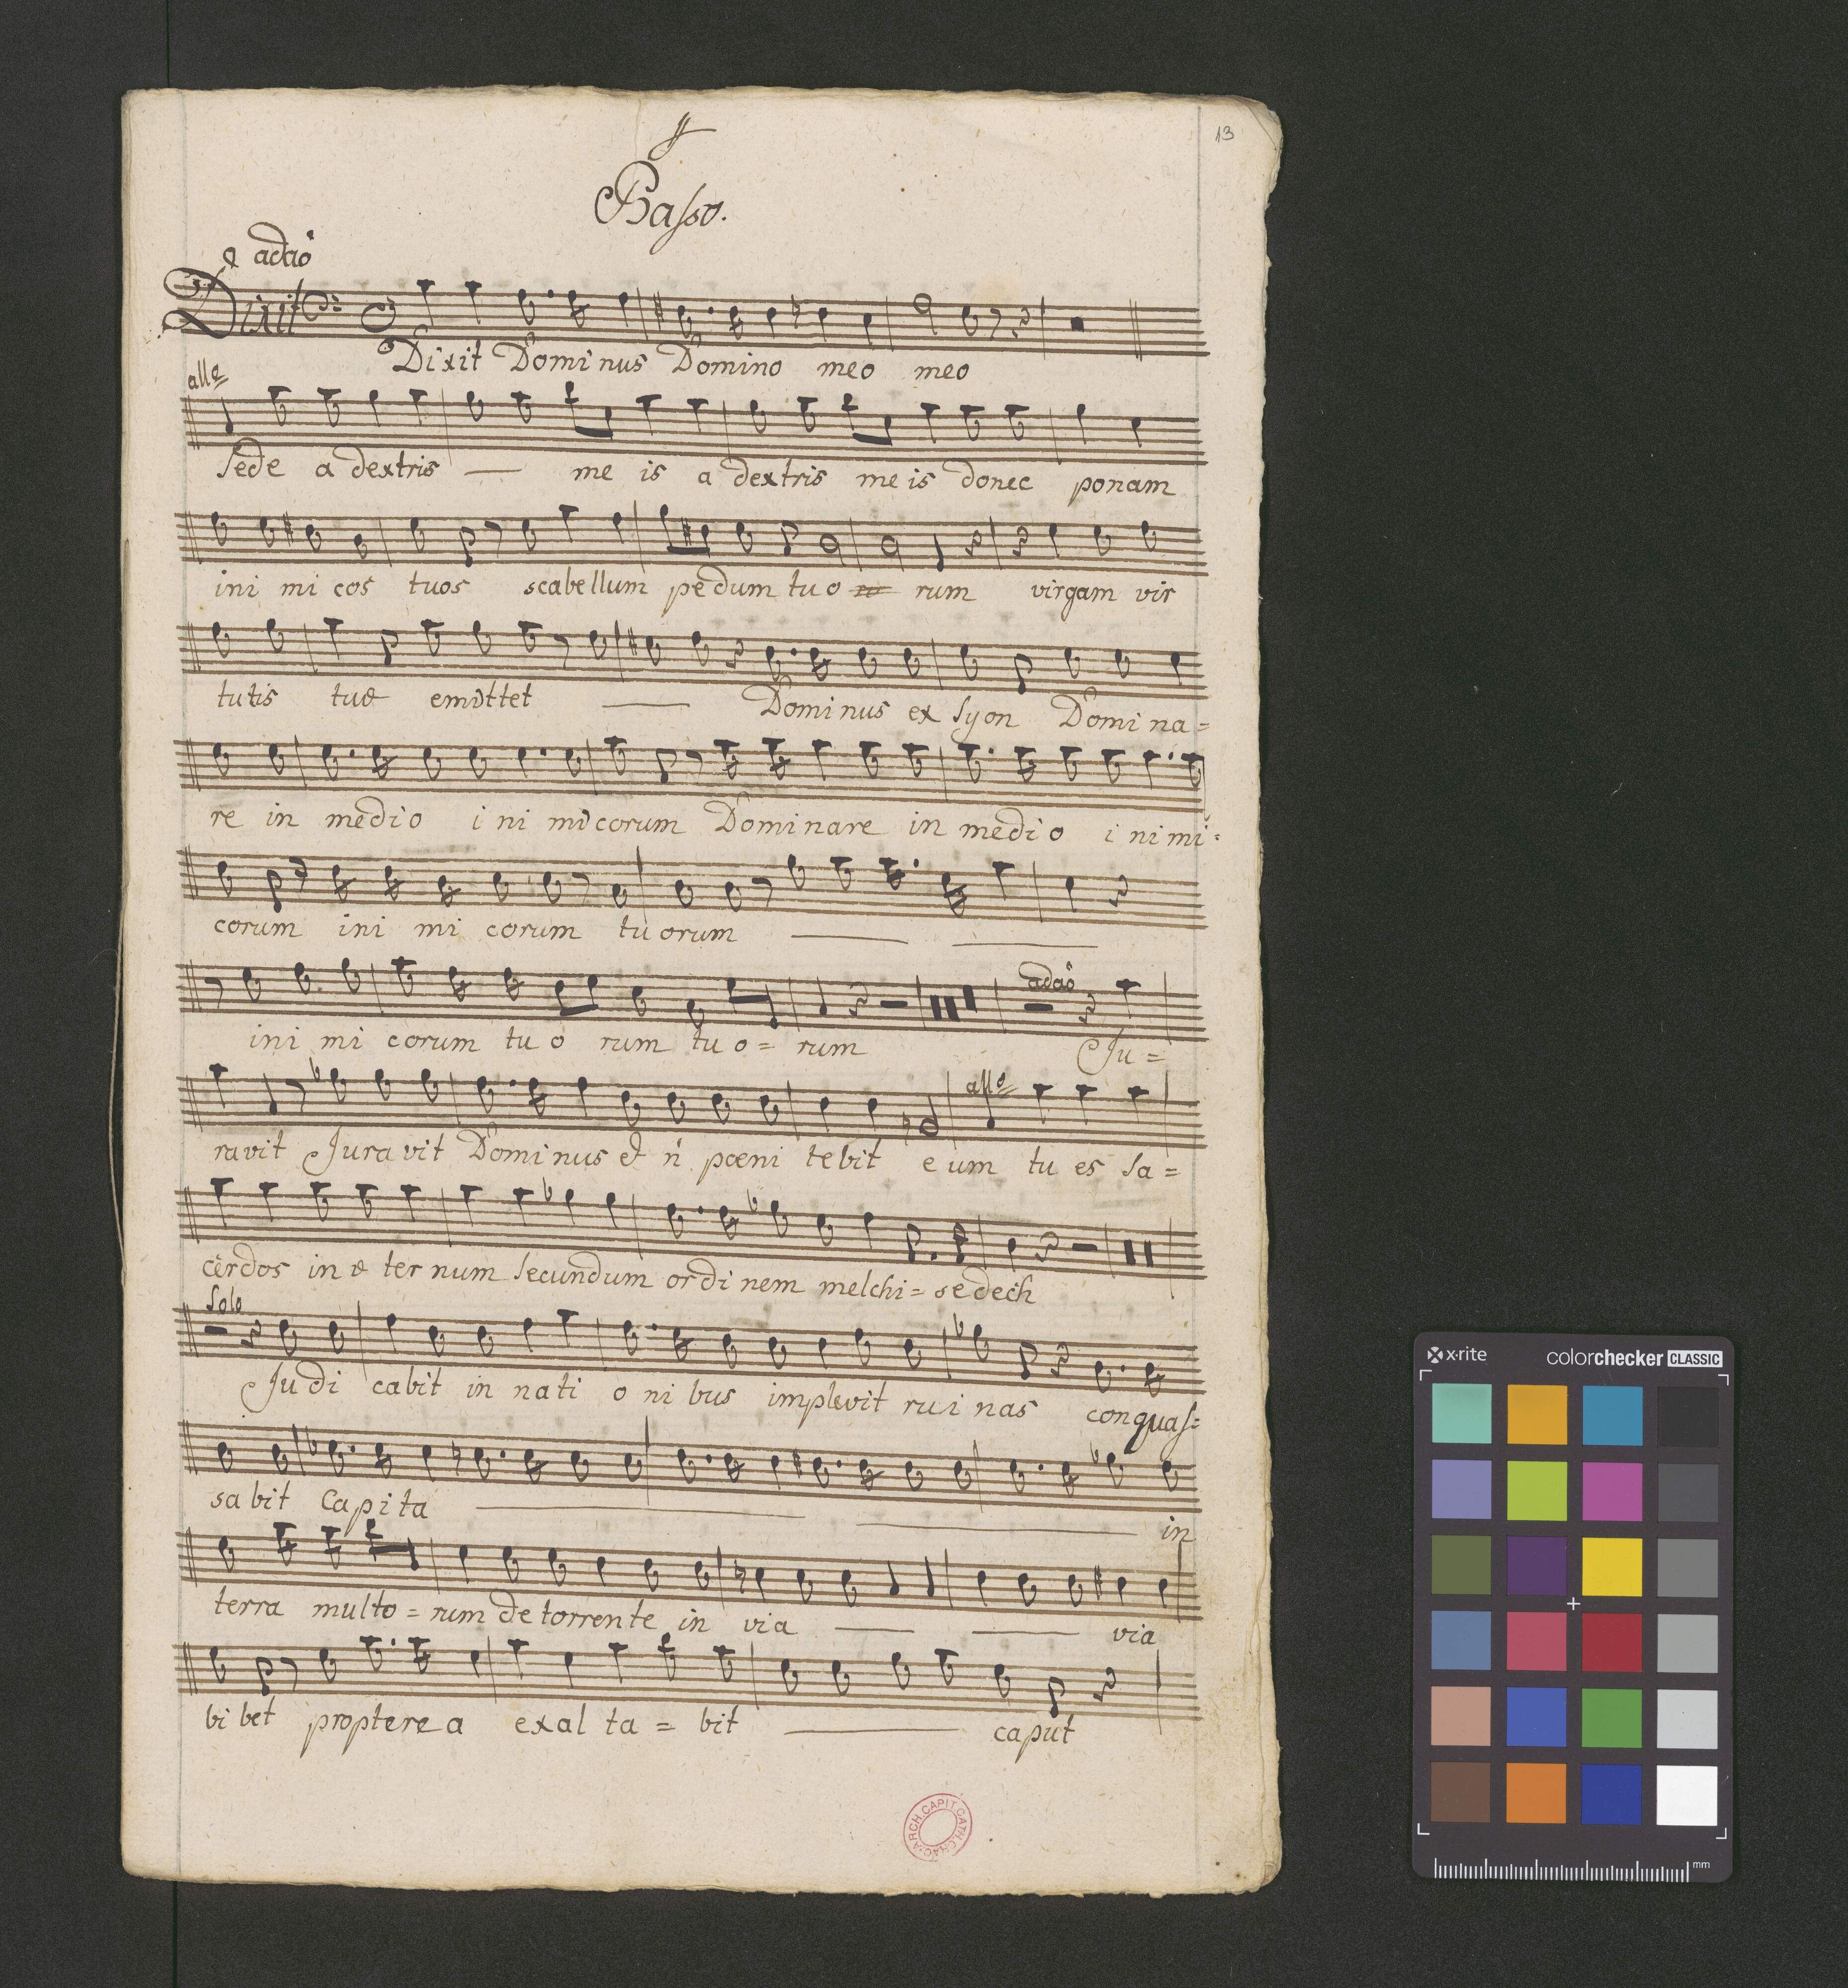 13
Basso.
adaõ
Dixit
Dixit Dominus Domino meo meo
allo
Sede a dextris me is a dextris me is donec ponam
ini mi cos tuos scabellum pedum tu o rum virgam vir
tutis tuæ emittet Dominus ex Syon Domi na=
re in medio i ni mi corum Dominare in medio i ni mi=
corum ini mi corum tu orum
adaõ
ini mi corum tu o rum tu o= rum Ju=
allo
ravit Jura vit Dominus et ń pœni tebit e um tu es sa=
cerdos in æ ter num secundum ordi nem melchi= sedech
Solo
Judi cabit in nati o ni bus implevit ru i nas conquas=
sa bit Capi ta in
terra multo= rum de torrente in via via
bi bet proptere a exal ta= bit caput
ARCH. CAPIT. CATH.
x·rite
colorchecker CLASSIC
mm